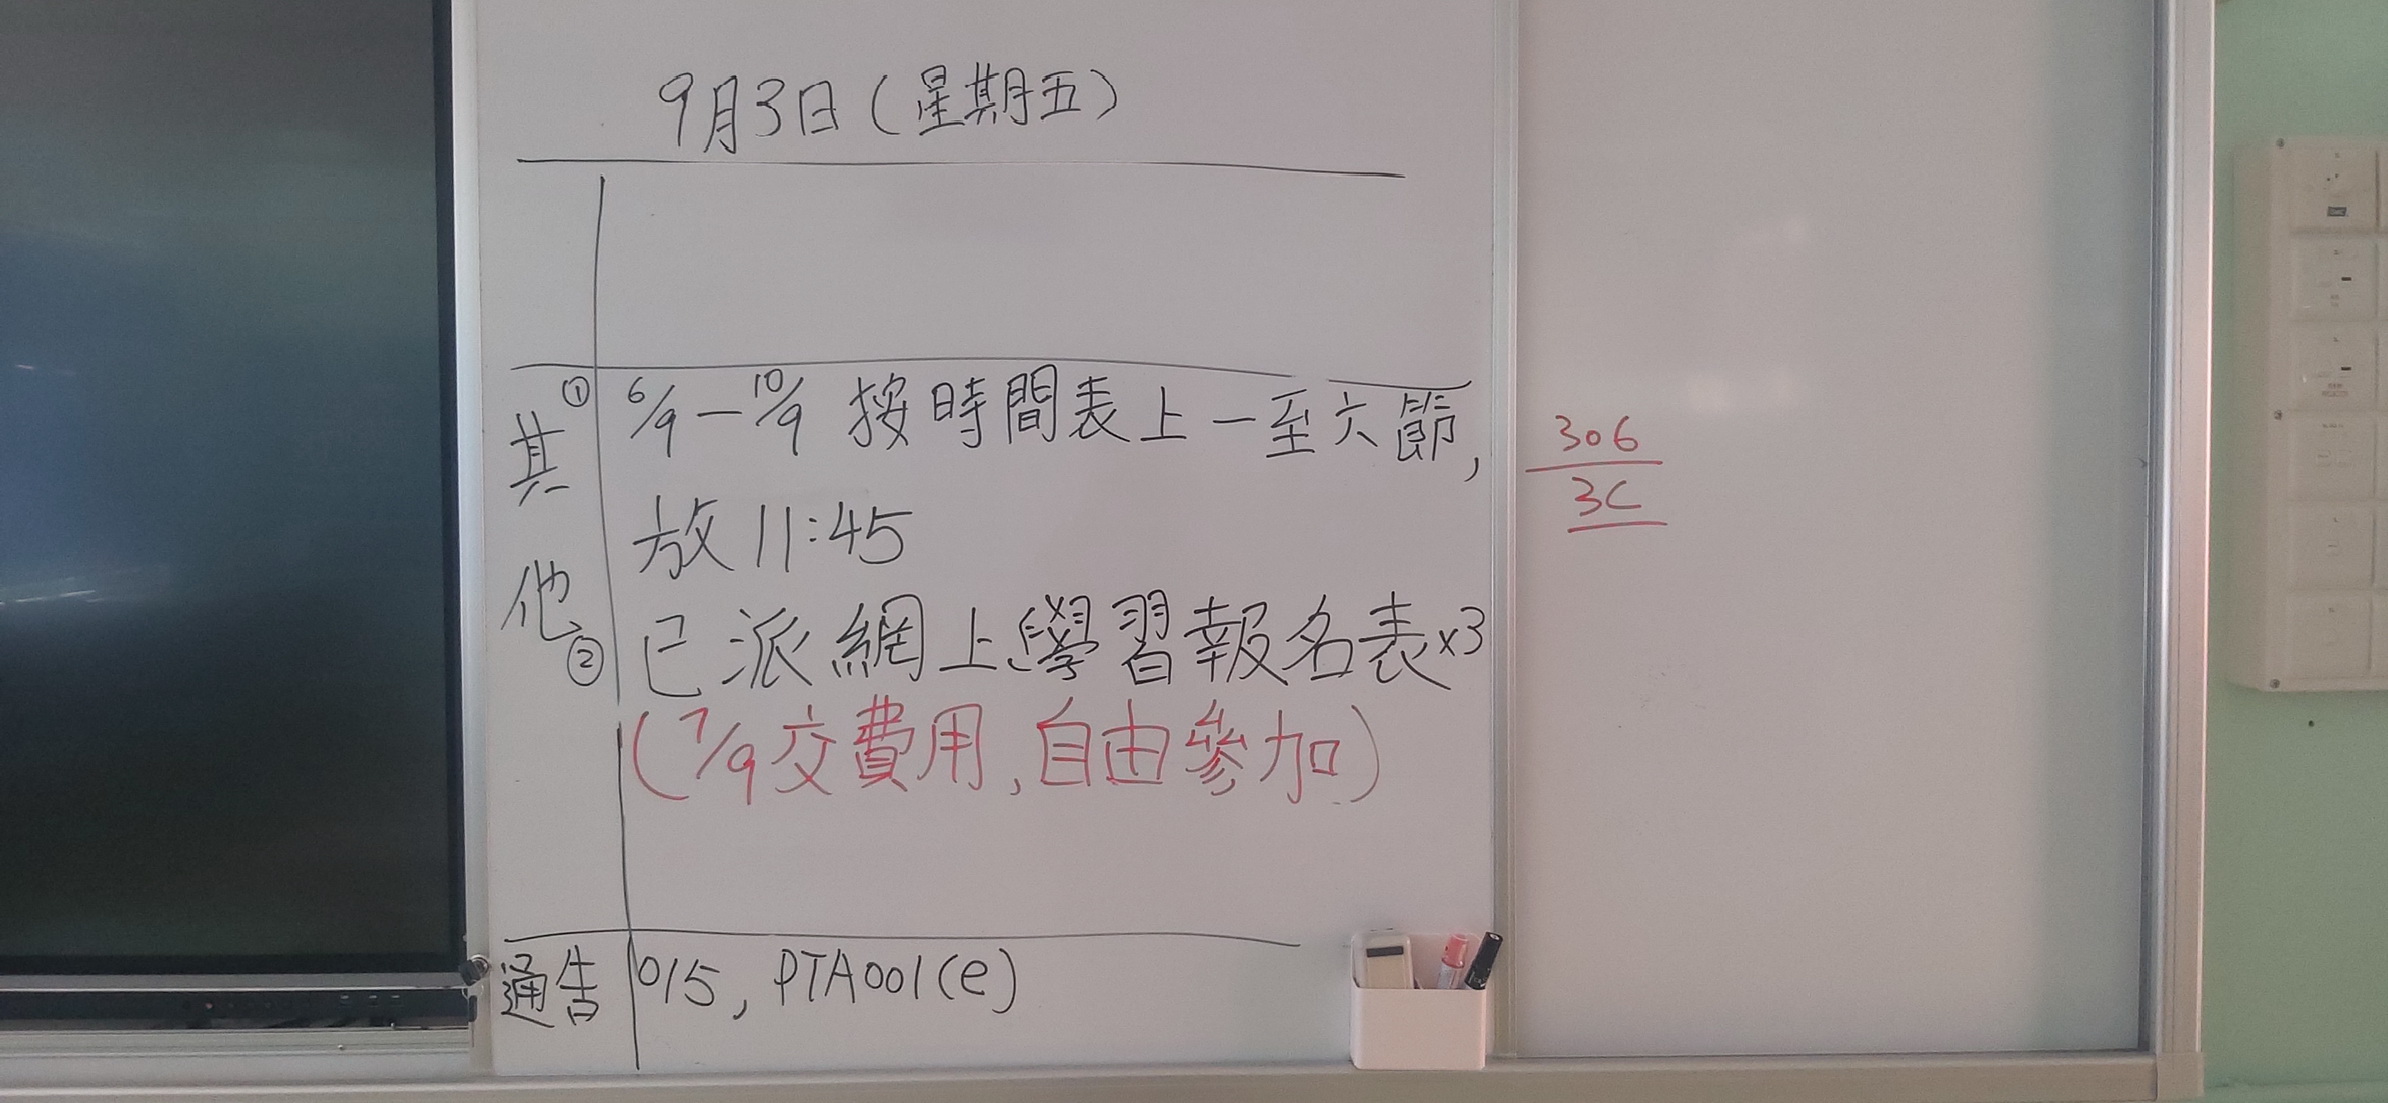 9月3日(星期五)
其他
① 6/9 — 10/9 按時間表上一至六節,
放11:45
② 已派網上學習報名表x3
(7/9交費用,自由參加)
通告 015, PTA001(e)
306
3C